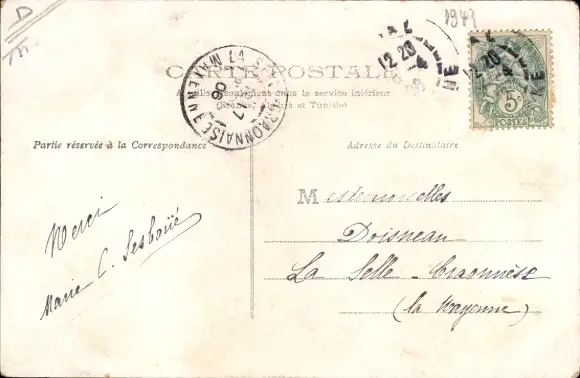 D
1943
12 20
4
CARTE POSTALE
dans le service intérieur
(France, Algérie et Tunisie)
CRAONNAISE
MAYENNE
06
12 20
4
5c
POSTES
Partie réservée à la Correspondance
Adresse du Destinataire
Merci
Marie C. Sesboüé
Mesdemoiselles
Doisneau
La Selle-Craonnèse
(la Mayenne)